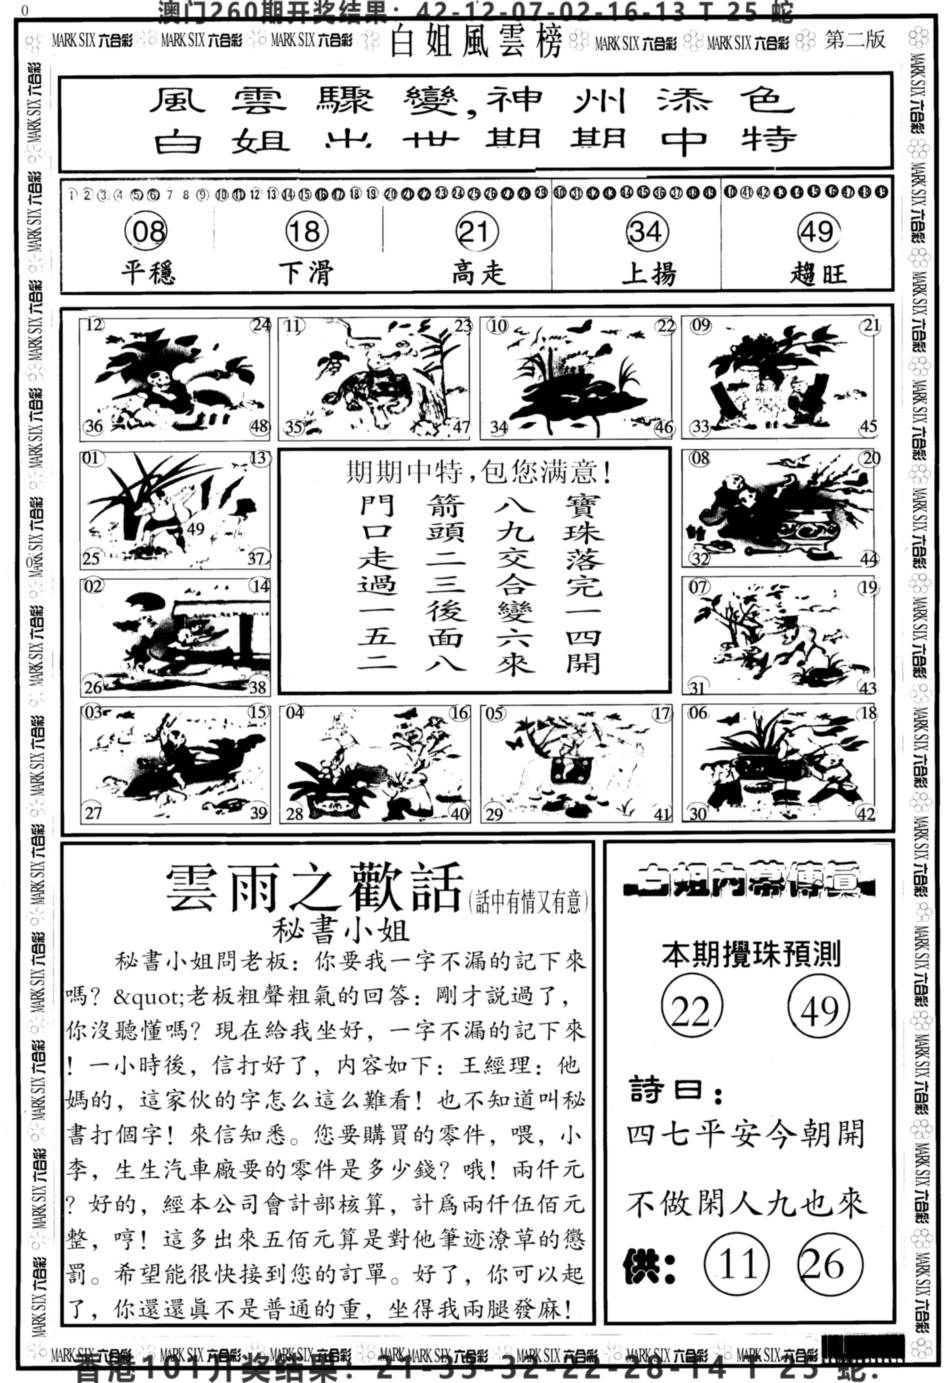 0
澳门260期开奖结果：42-12-07-02-16-13 T 25 蛇
MARK SIX 六合彩 MARK SIX 六合彩 MARK SIX 六合彩 白姐風雲榜 MARK SIX 六合彩 MARK SIX 六合彩 第二版
風雲驟變,神州添色
白姐出世期期中特
1 2 3 4 5 6 7 8 9 10 11 12 13 14 15 16 17 18 19 20 21 22 23 24 25 26 27 28 29 30 31 32 33 34 35 36 37 38 39 40 41 42 43 44 45 46 47 48 49
08 18 21 34 49
平穩 下滑 高走 上揚 趨旺
12 24 11 23 10 22 09 21
36 48 35 47 34 46 33 45
01 13 08 20
49
25 37 32 44
02 14 07 19
26 38 31 43
03 15 04 16 05 17 06 18
27 39 28 40 29 41 30 42
期期中特,包您满意!
寶珠落完一四開
八九交合變六來
箭頭二三後面八
門口走過一五二
雲雨之歡話(話中有情又有意)
秘書小姐
秘書小姐問老板：你要我一字不漏的記下來
嗎？&quot;老板粗聲粗氣的回答：剛才説過了，
你沒聽懂嗎？現在給我坐好，一字不漏的記下來
！一小時後，信打好了，内容如下：王經理：他
媽的，這家伙的字怎么這么難看！也不知道叫秘
書打個字！來信知悉。您要購買的零件，喂，小
李，生生汽車廠要的零件是多少錢？哦！兩仟元
？好的，經本公司會計部核算，計爲兩仟伍佰元
整，哼！這多出來五佰元算是對他筆迹潦草的懲
罰。希望能很快接到您的訂單。好了，你可以起
了，你還還眞不是普通的重，坐得我兩腿發麻！
白姐内幕傳眞
本期攪珠預測
22 49
詩曰：
四七平安今朝開
不做閑人九也來
供： 11 26
MARK SIX 六合彩 MARK SIX 六合彩 MARK SIX 六合彩 MARK SIX 六合彩 MARK SIX 六合彩 MARK SIX 六合彩 MARK SIX 六合彩
香港101开奖结果：21-33-32-22-28-14 T 25 蛇.